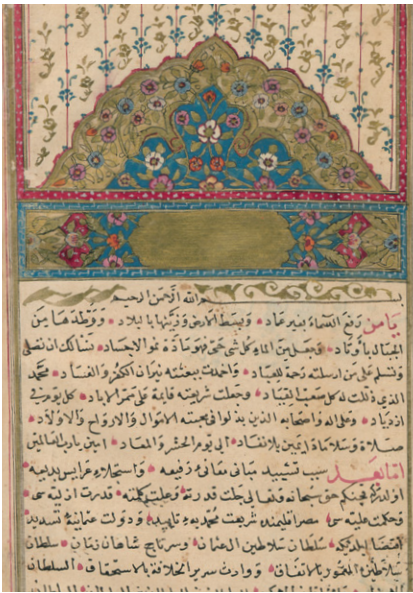 بسم الله الرحمن الرحيم
يا من رفع السماء بغير عماد وبسط الارض وزينها بالبلاد ووطدها من
الجبال باوتاد وجعل من الماء كل شئ حي ومادة نمو الاجساد نسالك ان تصلى
وتسلم على من ارسلته رحمة للعباد واخمدت ببعثته نيران الكفر والفساد محمد
الذى ذللت له كل صعب القياد وجعلت شريعته قايمة على ممر الاباد كل يوم فى
ازدياد وعلى اله واصحابه الذين بذلوا فى محبته الاموال والارواح والاولاد
صلاة وسلاما دايمين بلا نفاد الى يوم الحشر والمعاد امين يارب العالمين
اما بعد سبب تشييد مبانى معانئ رفيعه واستجلاء عرايس بديعه
اولدركه حق سبحانه وتعالى جلت قدرته وعلت كلمته قدرت ازليه سى
وحكمت عليه سى شريعت محمديه تاييد ودولت عثمانيه تسديد
سلطان سلاطين العثمان وسرتاج شاهان زمان سلطان
سلاطين بالاتفاق ووارث سرير الخلافة بالاستحقاق السلطان